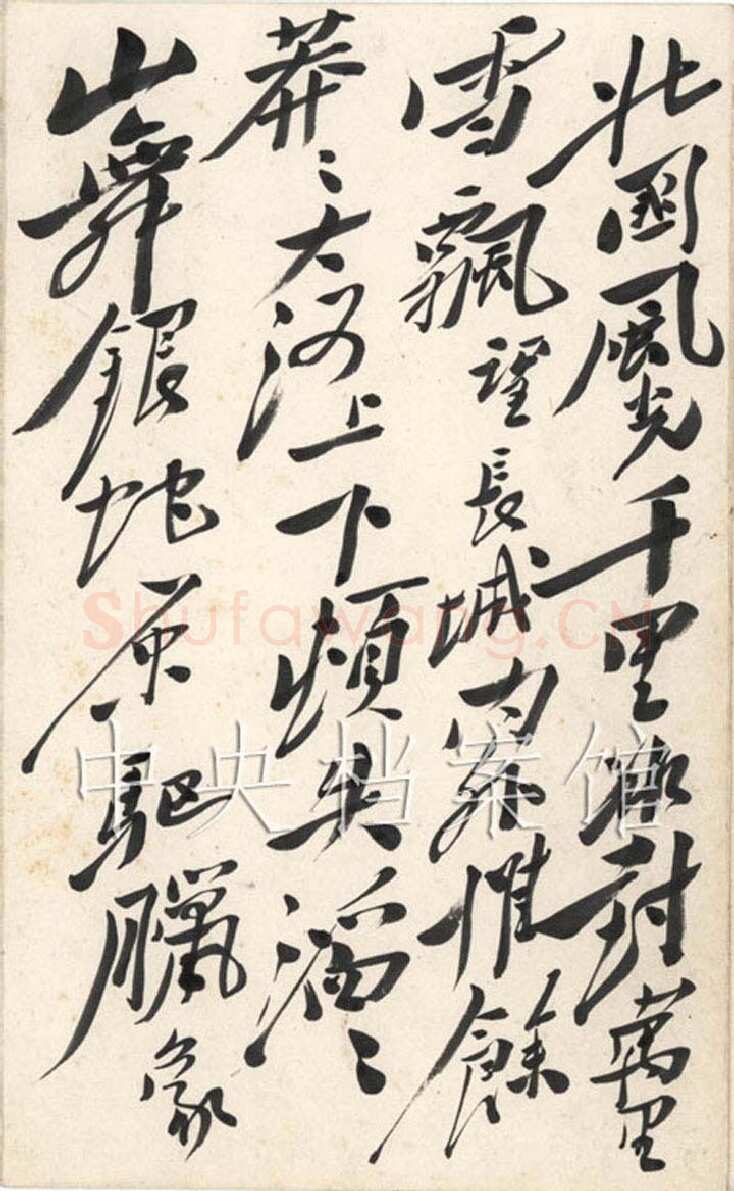 北國風光千里冰封萬里
雪飄望長城內外惟餘
莽〻大河上下頓失滔〻
山舞銀蛇原驅臘象
Shufawang.CN
中央档案馆